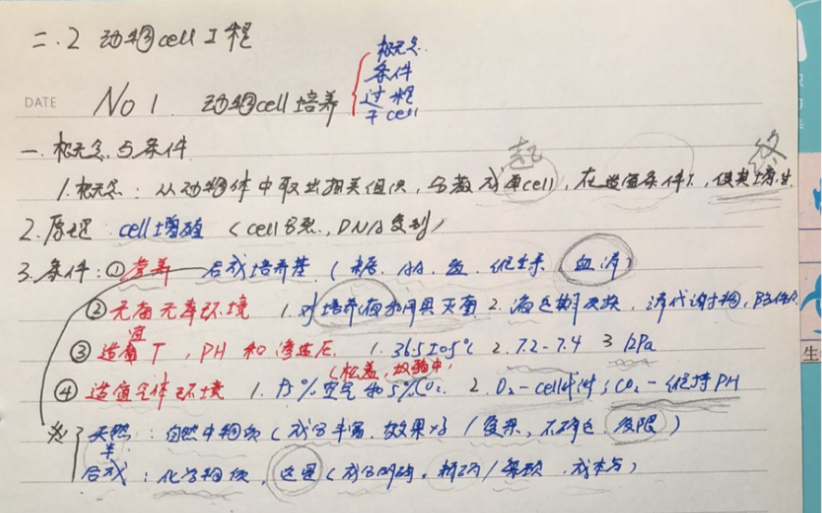 二.2 动物cell工程
DATE No 1. 动物cell培养
概念.
条件
过程
干cell
一. 概念与条件
起 终
1.概念: 从动物体中取出相关组织, 分散成单cell, 在适宜条件下, 使其增生.
2.原理 cell增殖 (cell分裂., DNA复制)
3.条件: ①营养 合成培养基. (糖. AA. 盐. 促生素. 血清)
②无菌无毒环境 1.对培养液和用具灭菌 2.液定期更换, 清代谢物,
③适宜T, PH 和渗透压. 1. 36.5±0.5℃ 2. 7.2-7.4 3. kPa
④适宜气体环境 1. 95%空气和5%CO₂. 2. O₂-cell代谢; CO₂-维持PH
天然: 自然中物质 (成分丰富. 效果好 / 复杂, 不确定.
半
合成: 化学物质, (成分明确, 精确 /
生